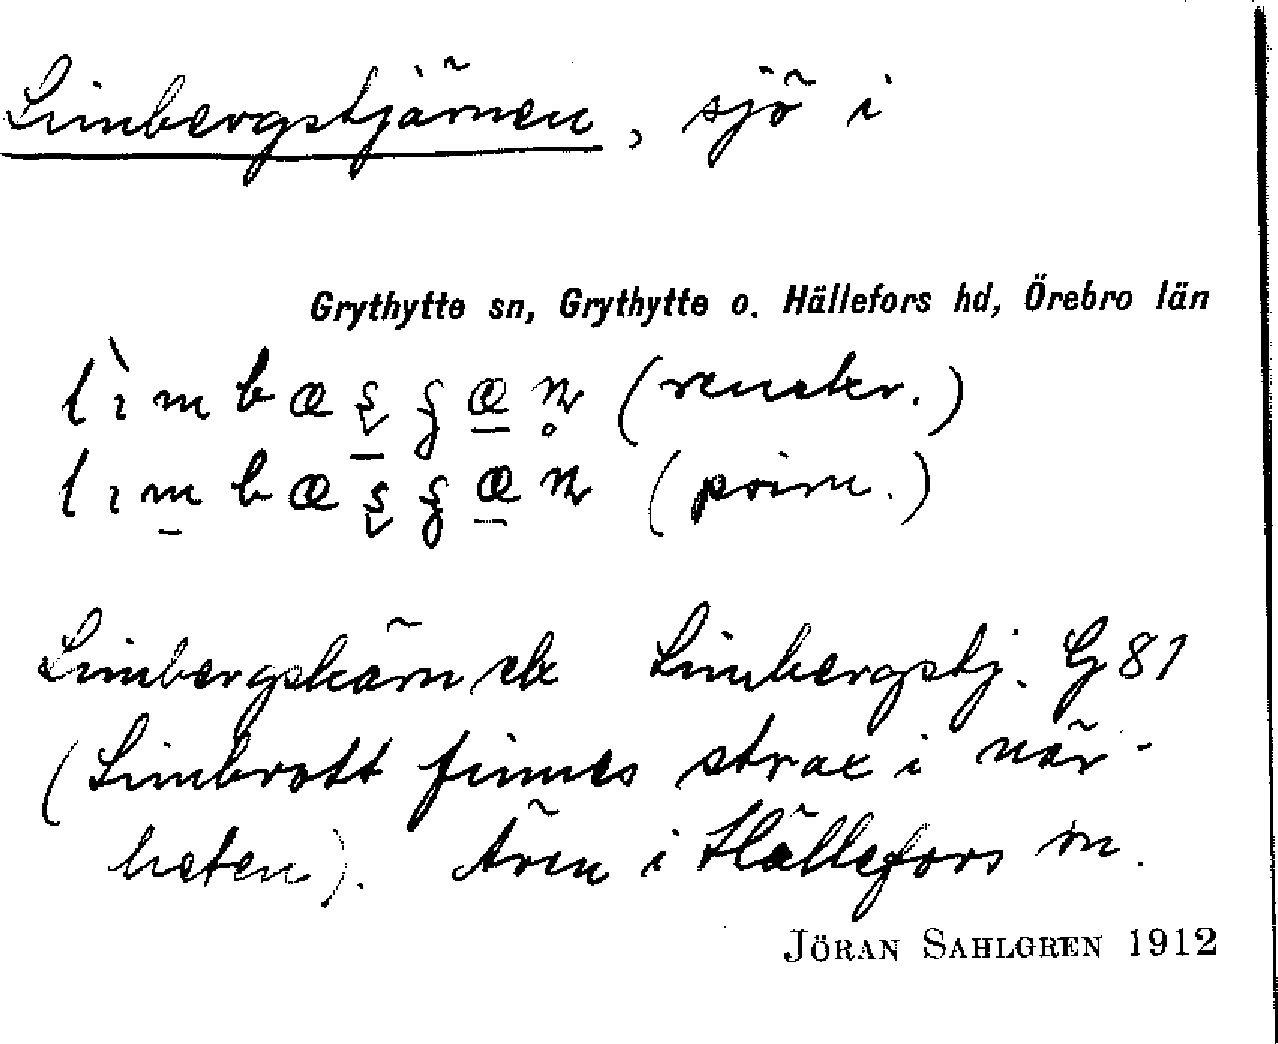 Limbergstjärnen, sjö i
Grythytte sn, Grythytte o. Hällefors hd, Örebro län
(renskr.)
(prim.)
Limbergskärn ek Limbergstj. G 81
(Limbrott finnes strax i när-
heten). Även i Hällefors sn.
JÖRAN SAHLGREN 1912